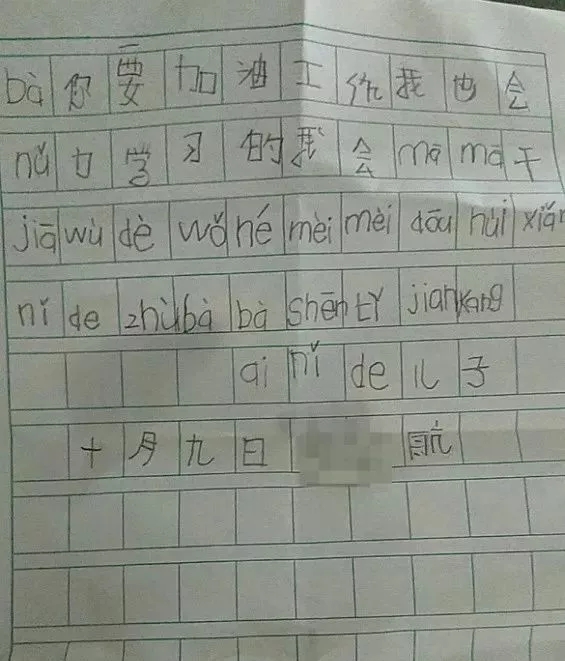 bà 你要加油工作我也会
nǔ 力学习的我会 mā mā 干
jiā wù dè wǒ hé mèi mèi dōu hùi xiǎn
nǐ de zhù bà bà shēn tY jiankang
ai nǐ de 儿子
十月九日 航